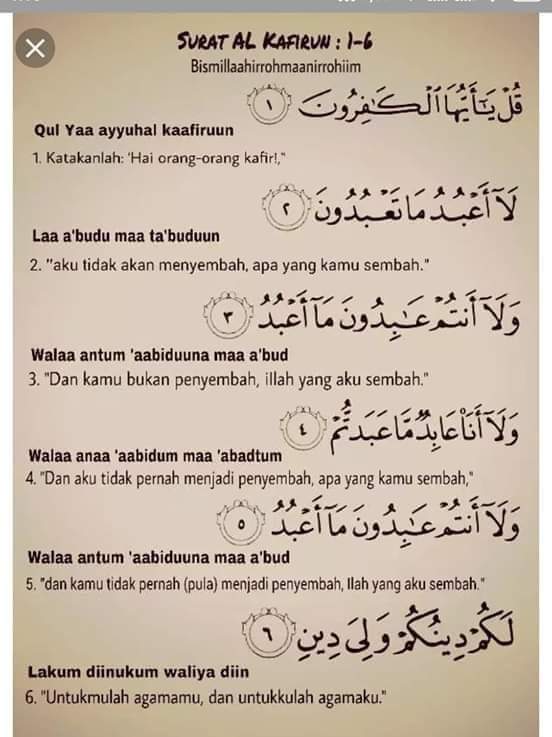 SURAT AL KAFIRUN : 1-6
Bismillaahirrohmaanirrohiim
قُلْ يَـٰٓأَيُّهَا ٱلْكَـٰفِرُونَ ١
Qul Yaa ayyuhal kaafiruun
1. Katakanlah: 'Hai orang-orang kafir!,"
لَآ أَعْبُدُ مَا تَعْبُدُونَ ٢
Laa a'budu maa ta'buduun
2. "aku tidak akan menyembah, apa yang kamu sembah."
وَلَآ أَنتُمْ عَـٰبِدُونَ مَآ أَعْبُدُ ٣
Walaa antum 'aabiduuna maa a'bud
3. "Dan kamu bukan penyembah, illah yang aku sembah."
وَلَآ أَنَا۠ عَابِدٌ مَّا عَبَدتُّمْ ٤
Walaa anaa 'aabidum maa 'abadtum
4. "Dan aku tidak pernah menjadi penyembah, apa yang kamu sembah,"
وَلَآ أَنتُمْ عَـٰبِدُونَ مَآ أَعْبُدُ ٥
Walaa antum 'aabiduuna maa a'bud
5. "dan kamu tidak pernah (pula) menjadi penyembah, Ilah yang aku sembah."
لَكُمْ دِينُكُمْ وَلِىَ دِينِ ٦
Lakum diinukum waliya diin
6. "Untukmulah agamamu, dan untukkulah agamaku."